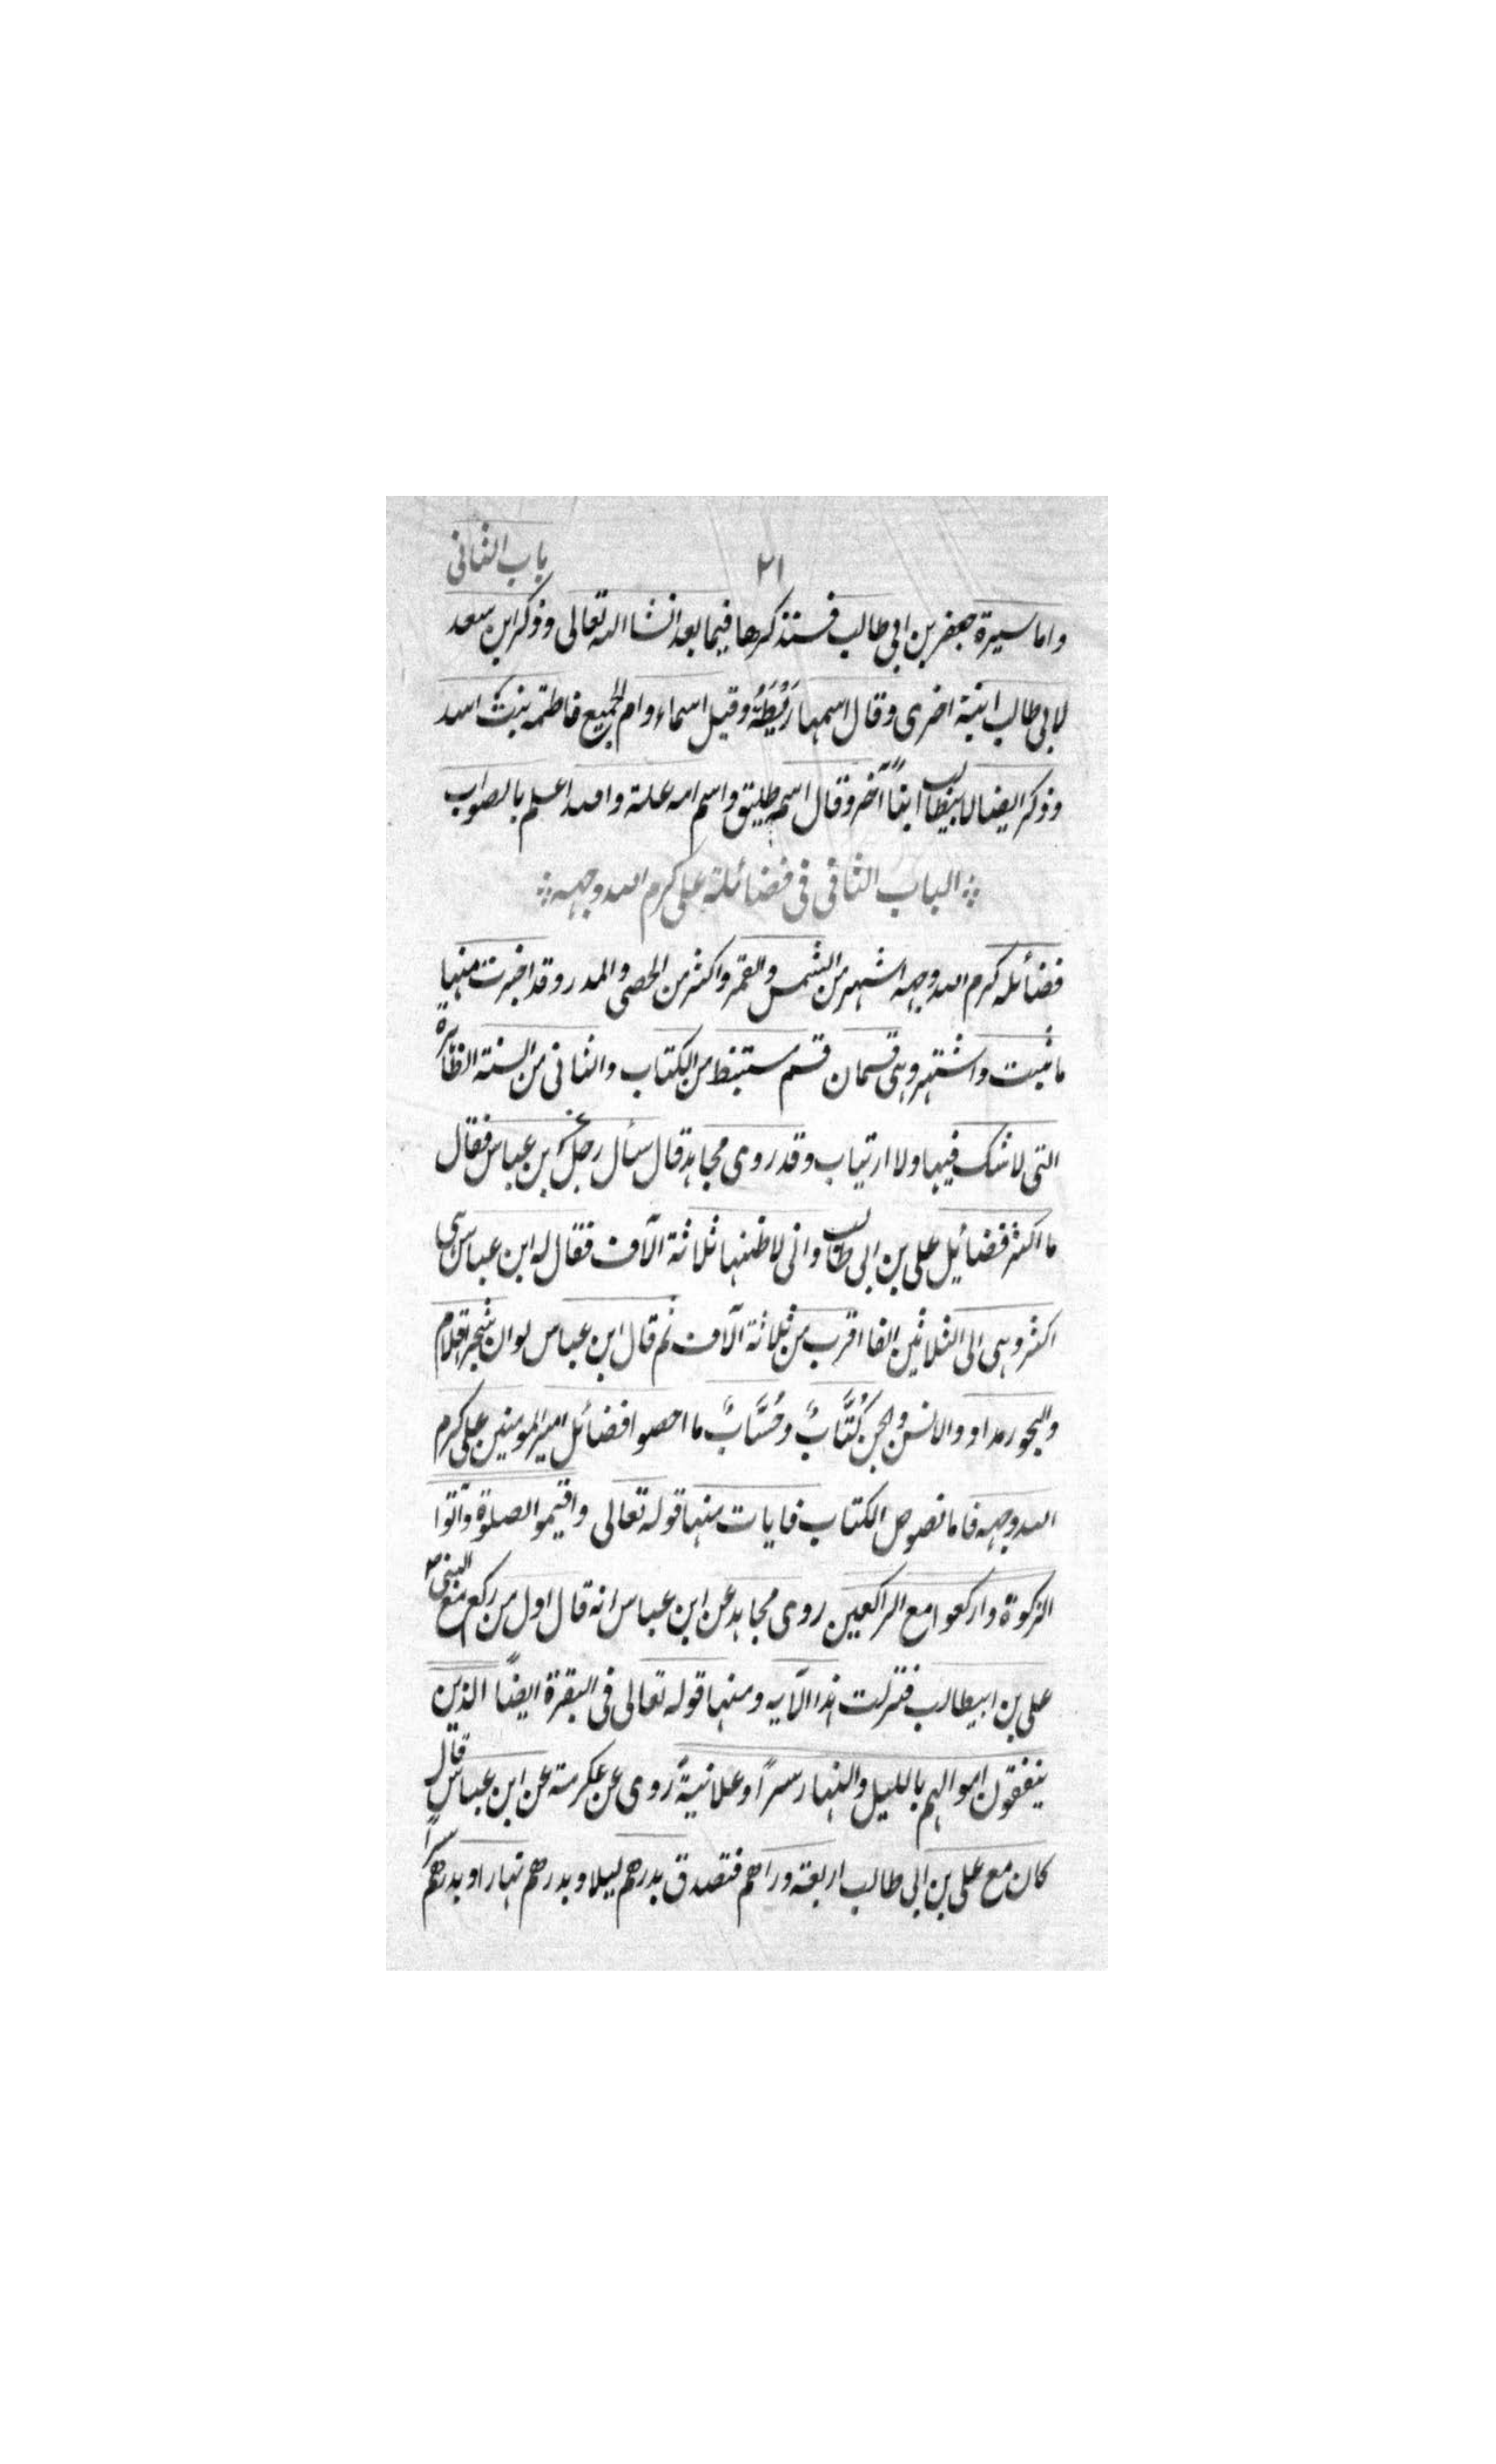 ٢١ باب الثانی
واما سیرة جعفر بن ابی طالب فستذکرها فیما بعد انشا الله تعالی وذکر ابن سعد
لابی طالب ابنة اخری وقال اسمها رَیْطَةُ وقیل اسماء وام الجمیع فاطمة بنت اسد
وذکر ایضا لابیطالب ابناً آخر وقال اسمه طلیق واسم امه علة والله اعلم بالصواب
الباب الثانی فی فضائله علی کرم الله وجهه
فضائله کرم الله وجهه اشهر من الشمس والقمر واکثر من الحصی والمدر وقد اخترت منها
ما ثبت واشتهر وهی قسمان قسم مستنبط من الکتاب والثانی من السنة الظاهرة
التی لا شک فیها ولا ارتیاب وقد روی مجاهد قال سأل رجل بن عباس فقال
ما اکثر فضائیل علی بن ابی طالب وانی لاظنها ثلاثة الآف فقال له ابن عباس هی
اکثر وهی الی الثلاثین الفا اقرب من ثلاثة الآف ثم قال ابن عباس لو ان شجر اقلام
والبحور مداد والانس والجن کُتَّابٌ وحُسَّابٌ ما احصوا فضائل امیر المومنین علی کرم
الله وجهه فاما نصوص الکتاب فایات منها قوله تعالی واقیموا الصلوة وآتوا
الزکوة وارکعوا مع الراکعین روی مجاهد عن ابن عباس انه قال اول من رکع مع النبی ص
علی بن ابیطالب فنزلت هذا الآیه ومنها قوله تعالی فی البقرة ایضاً الذین
ینفقون اموالهم باللیل والنهار سراً وعلانیةً روی عن عکرمة عن ابن عباس قال
کان مع علی بن ابی طالب اربعة دراهم فتصدق بدرهم لیلا وبدرهم نهارا وبدرهم سراً